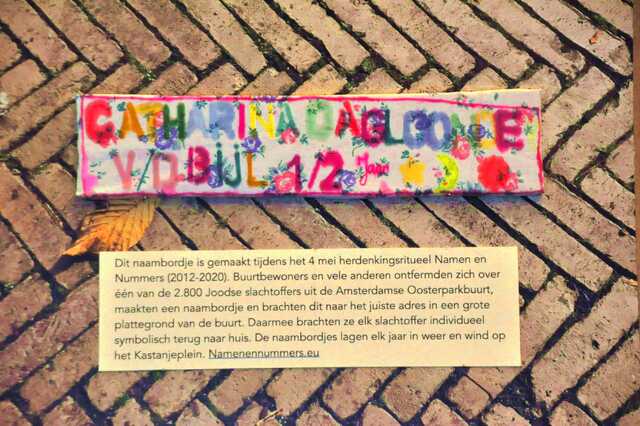 CATHARINA DAGLOONDE
V/D BIJL 1/2 Jaar
Dit naambordje is gemaakt tijdens het 4 mei herdenkingsritueel Namen en
Nummers (2012-2020). Buurtbewoners en vele anderen ontfermden zich over
één van de 2.800 Joodse slachtoffers uit de Amsterdamse Oosterparkbuurt,
maakten een naambordje en brachten dit naar het juiste adres in een grote
plattegrond van de buurt. Daarmee brachten ze elk slachtoffer individueel
symbolisch terug naar huis. De naambordjes lagen elk jaar in weer en wind op
het Kastanjeplein. Namenennummers.eu